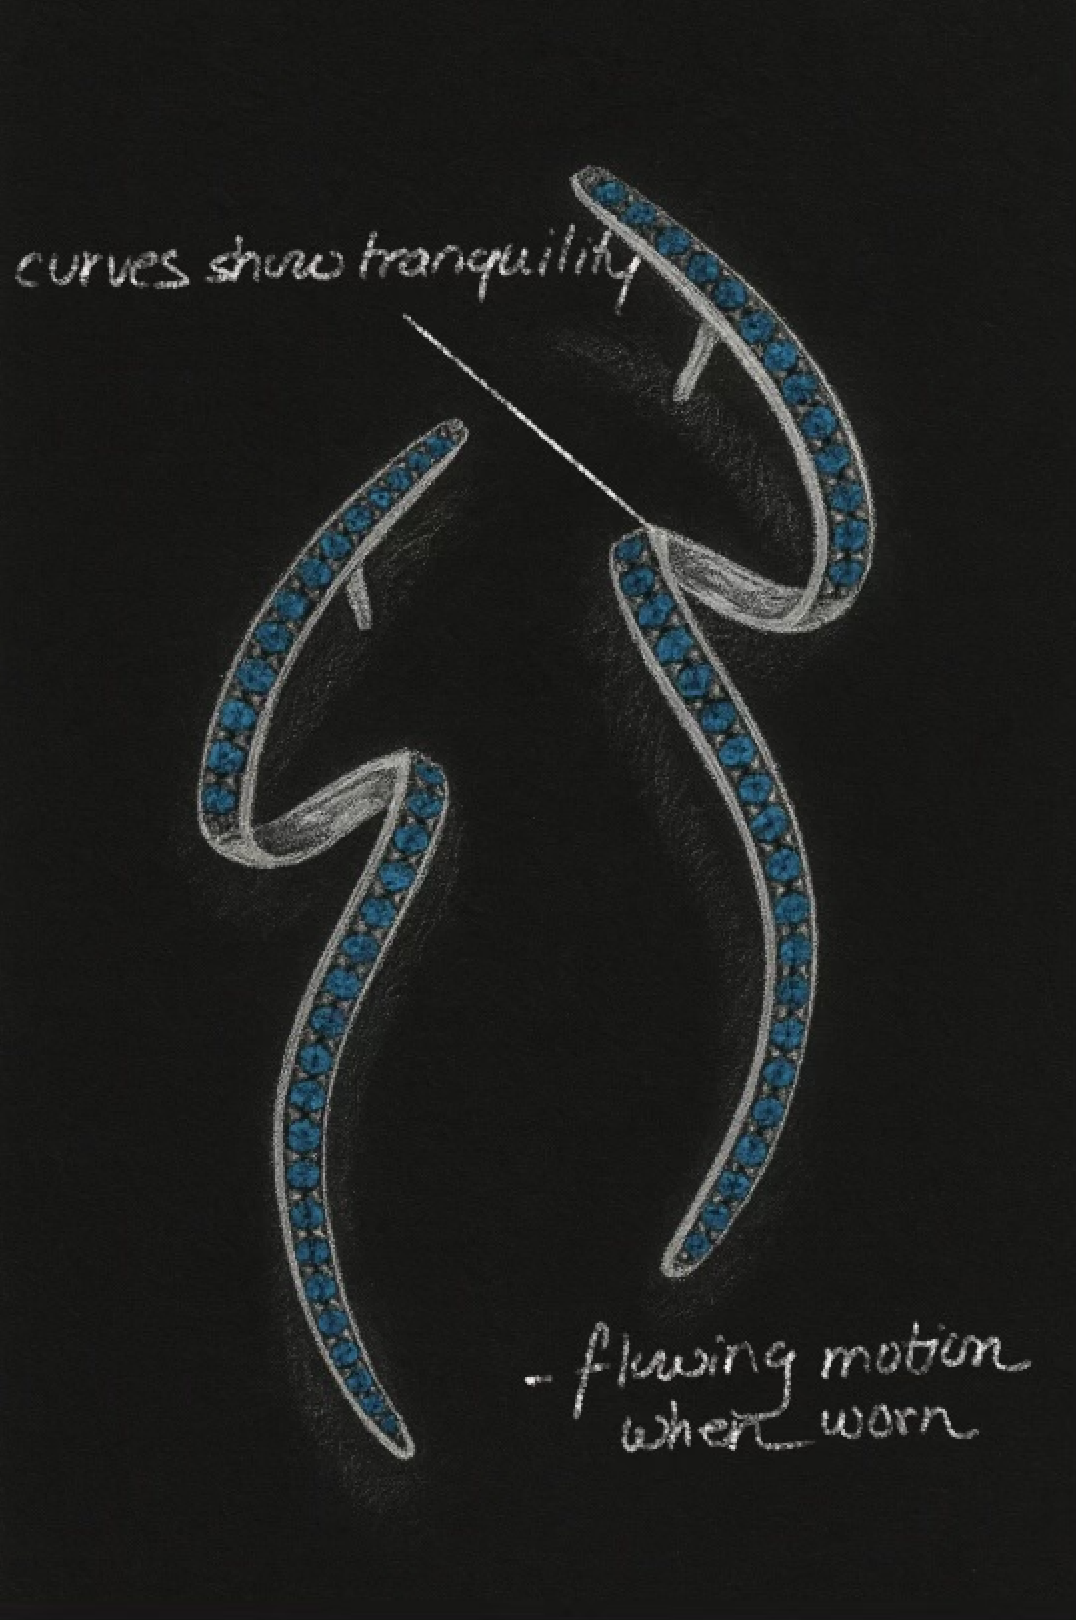 curves show tranquility
- flowing motion
when worn